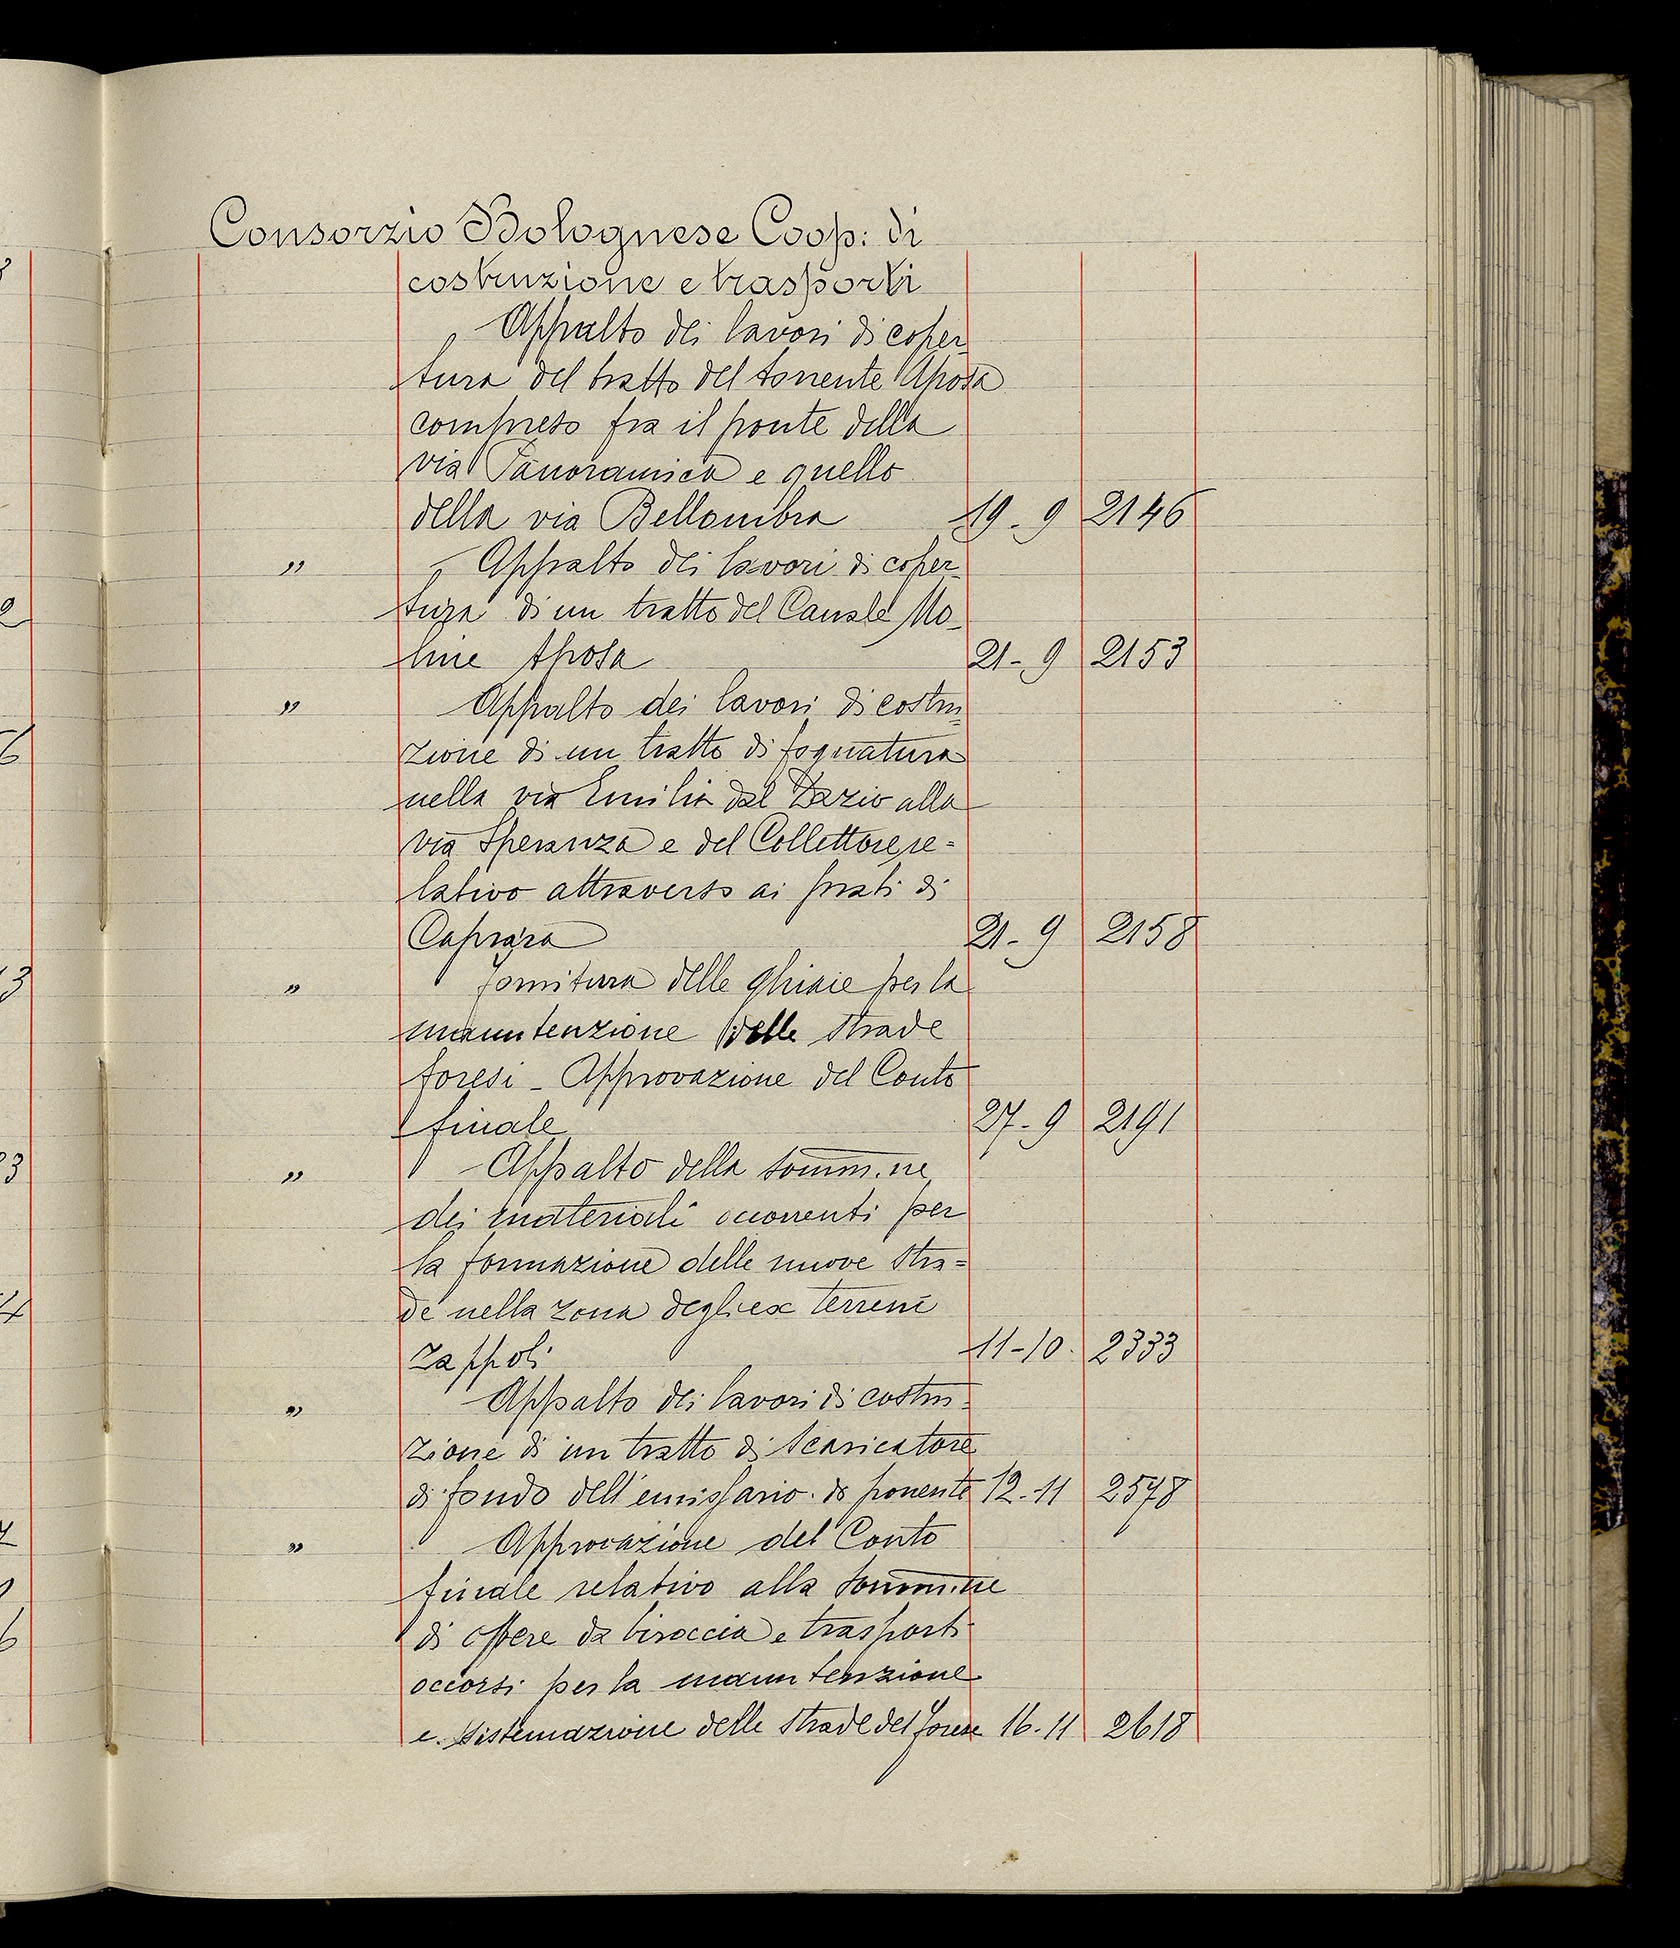 Consorzio Bolognese Coop: di
costruzione e trasporti
Appalto dei lavori di coper-
tura del tratto del torrente Aposa
compreso fra il ponte della
via Panoramica e quello
della via Bellombra 19-9 2146
" Appalto dei lavori di coper-
tura di un tratto del Canale Mo-
line Aposa 21-9 2153
" Appalto dei lavori di costru=
zione di un tratto di fognatura
nella via Emilia dal Dazio alla
via Speranza e del Collettore re-
lativo attraverso ai prati di
Caprara 21-9 2158
" fornitura delle ghiaie per la
manutenzione delle strade
foresi - Approvazione del Conto
finale 27-9 2191
" Appalto della somm.ne
dei materiali occorrenti per
la formazione delle nuove stra=
de nella zona degli ex terreni
Zappoli 11-10. 2333
" Appalto dei lavori di costru-
zione di un tratto di scaricatore
di fondo dell'emissario di ponente 12-11 2578
" Approvazione del Conto
finale relativo alla somm.ne
di opere da biroccia e trasporti
occorsi per la manutenzione
e sistemazione delle strade del forese 16-11 2618